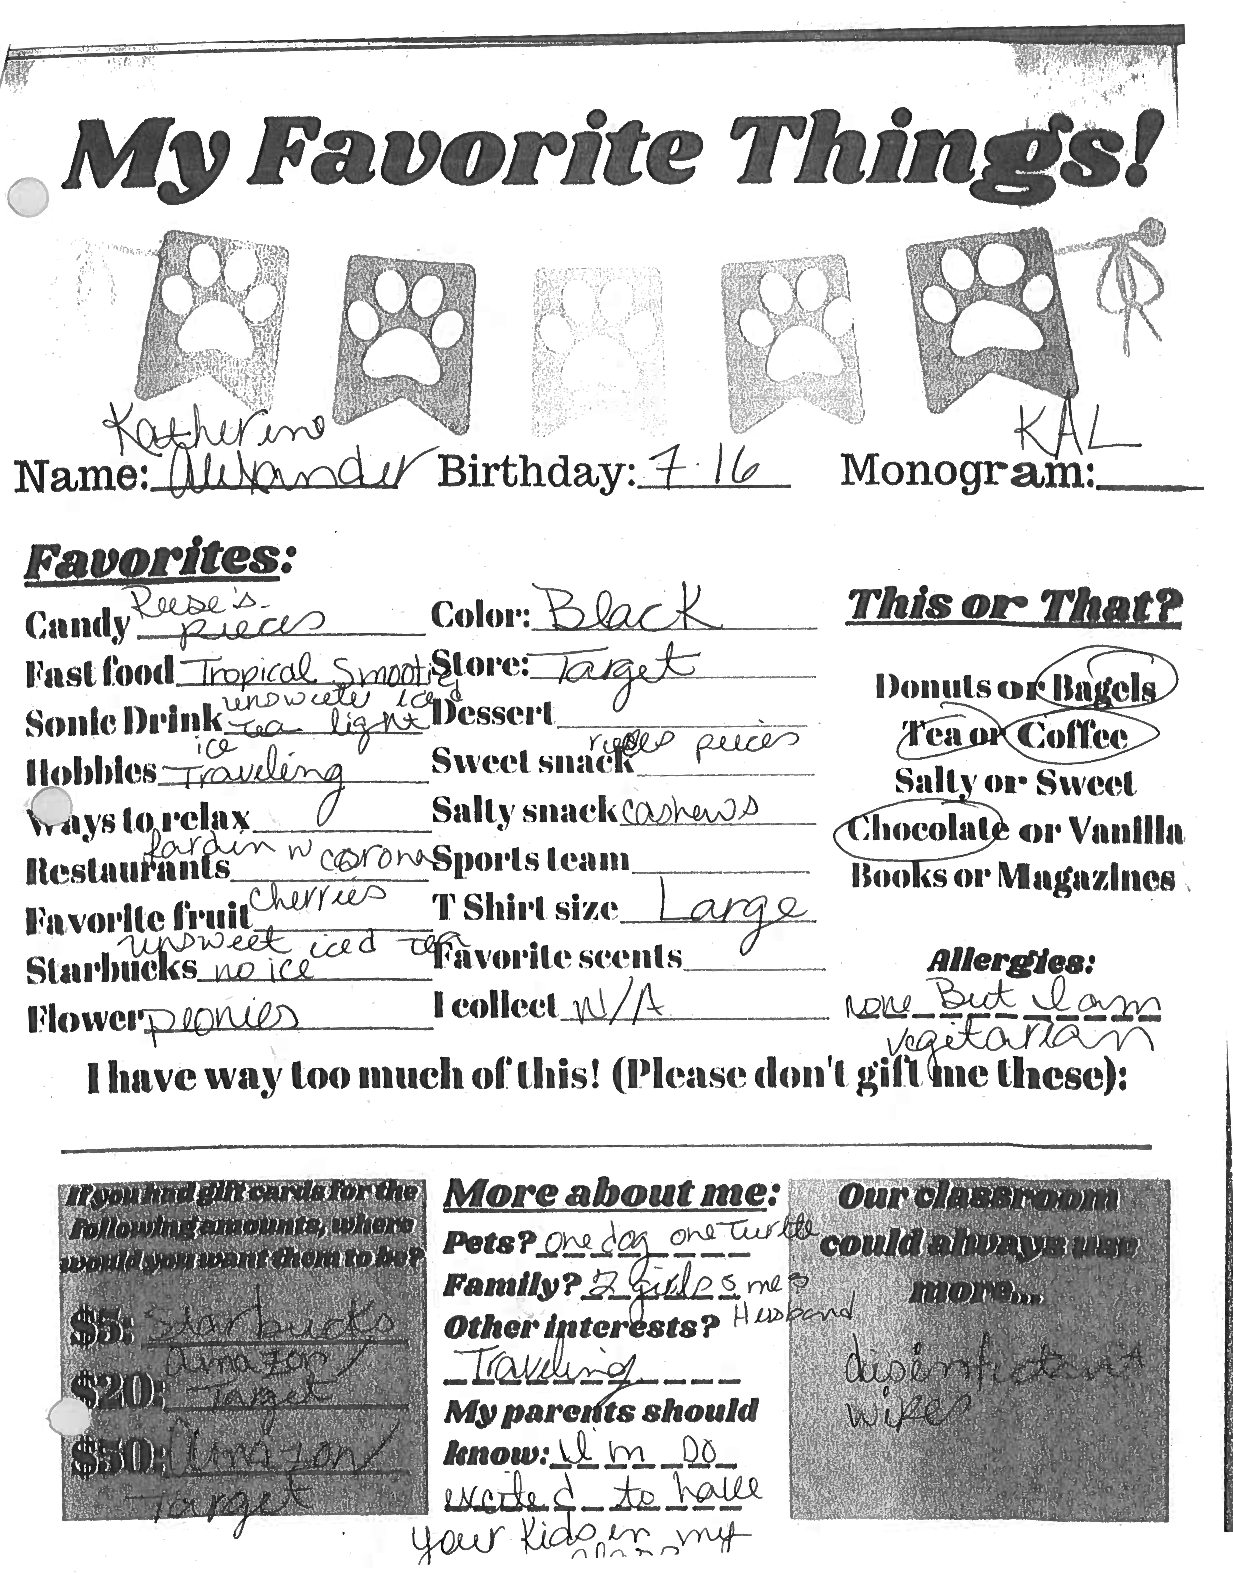 My Favorite Things!
Katherine
Name: Alexander Birthday: 7.16 Monogram: KAL
Favorites:
Candy Reese's pieces
Fast food Tropical Smootie
Sonic Drink unsweete iced tea light ice
Hobbies Traveling
Ways to relax
Restaurants corona
Favorite fruit cherries
Starbucks unsweet iced tea no ice
Flower peonies
Color: Black
Store: Target
Dessert
Sweet snack pieces
Salty snack cashews
Sports team
T Shirt size Large
Favorite scents
I collect N/A
This or That?
Donuts or Bagels
Tea or Coffee
Salty or Sweet
Chocolate or Vanilla
Books or Magazines
Allergies:
none But I am
vegitarian
I have way too much of this! (Please don't gift me these):
If you had gift cards for the
following amounts, where
would you want them to be?
$5: Starbucks
$20: Amazon/
Target
$50: Amazon/
Target
More about me:
Pets? One dog one Turtle
Family? 2 girls me &
Husband
Other interests?
Traveling
My parents should
know: I'm so
excited to have
your kids in my
Our classroom
could always use
more...
wipes